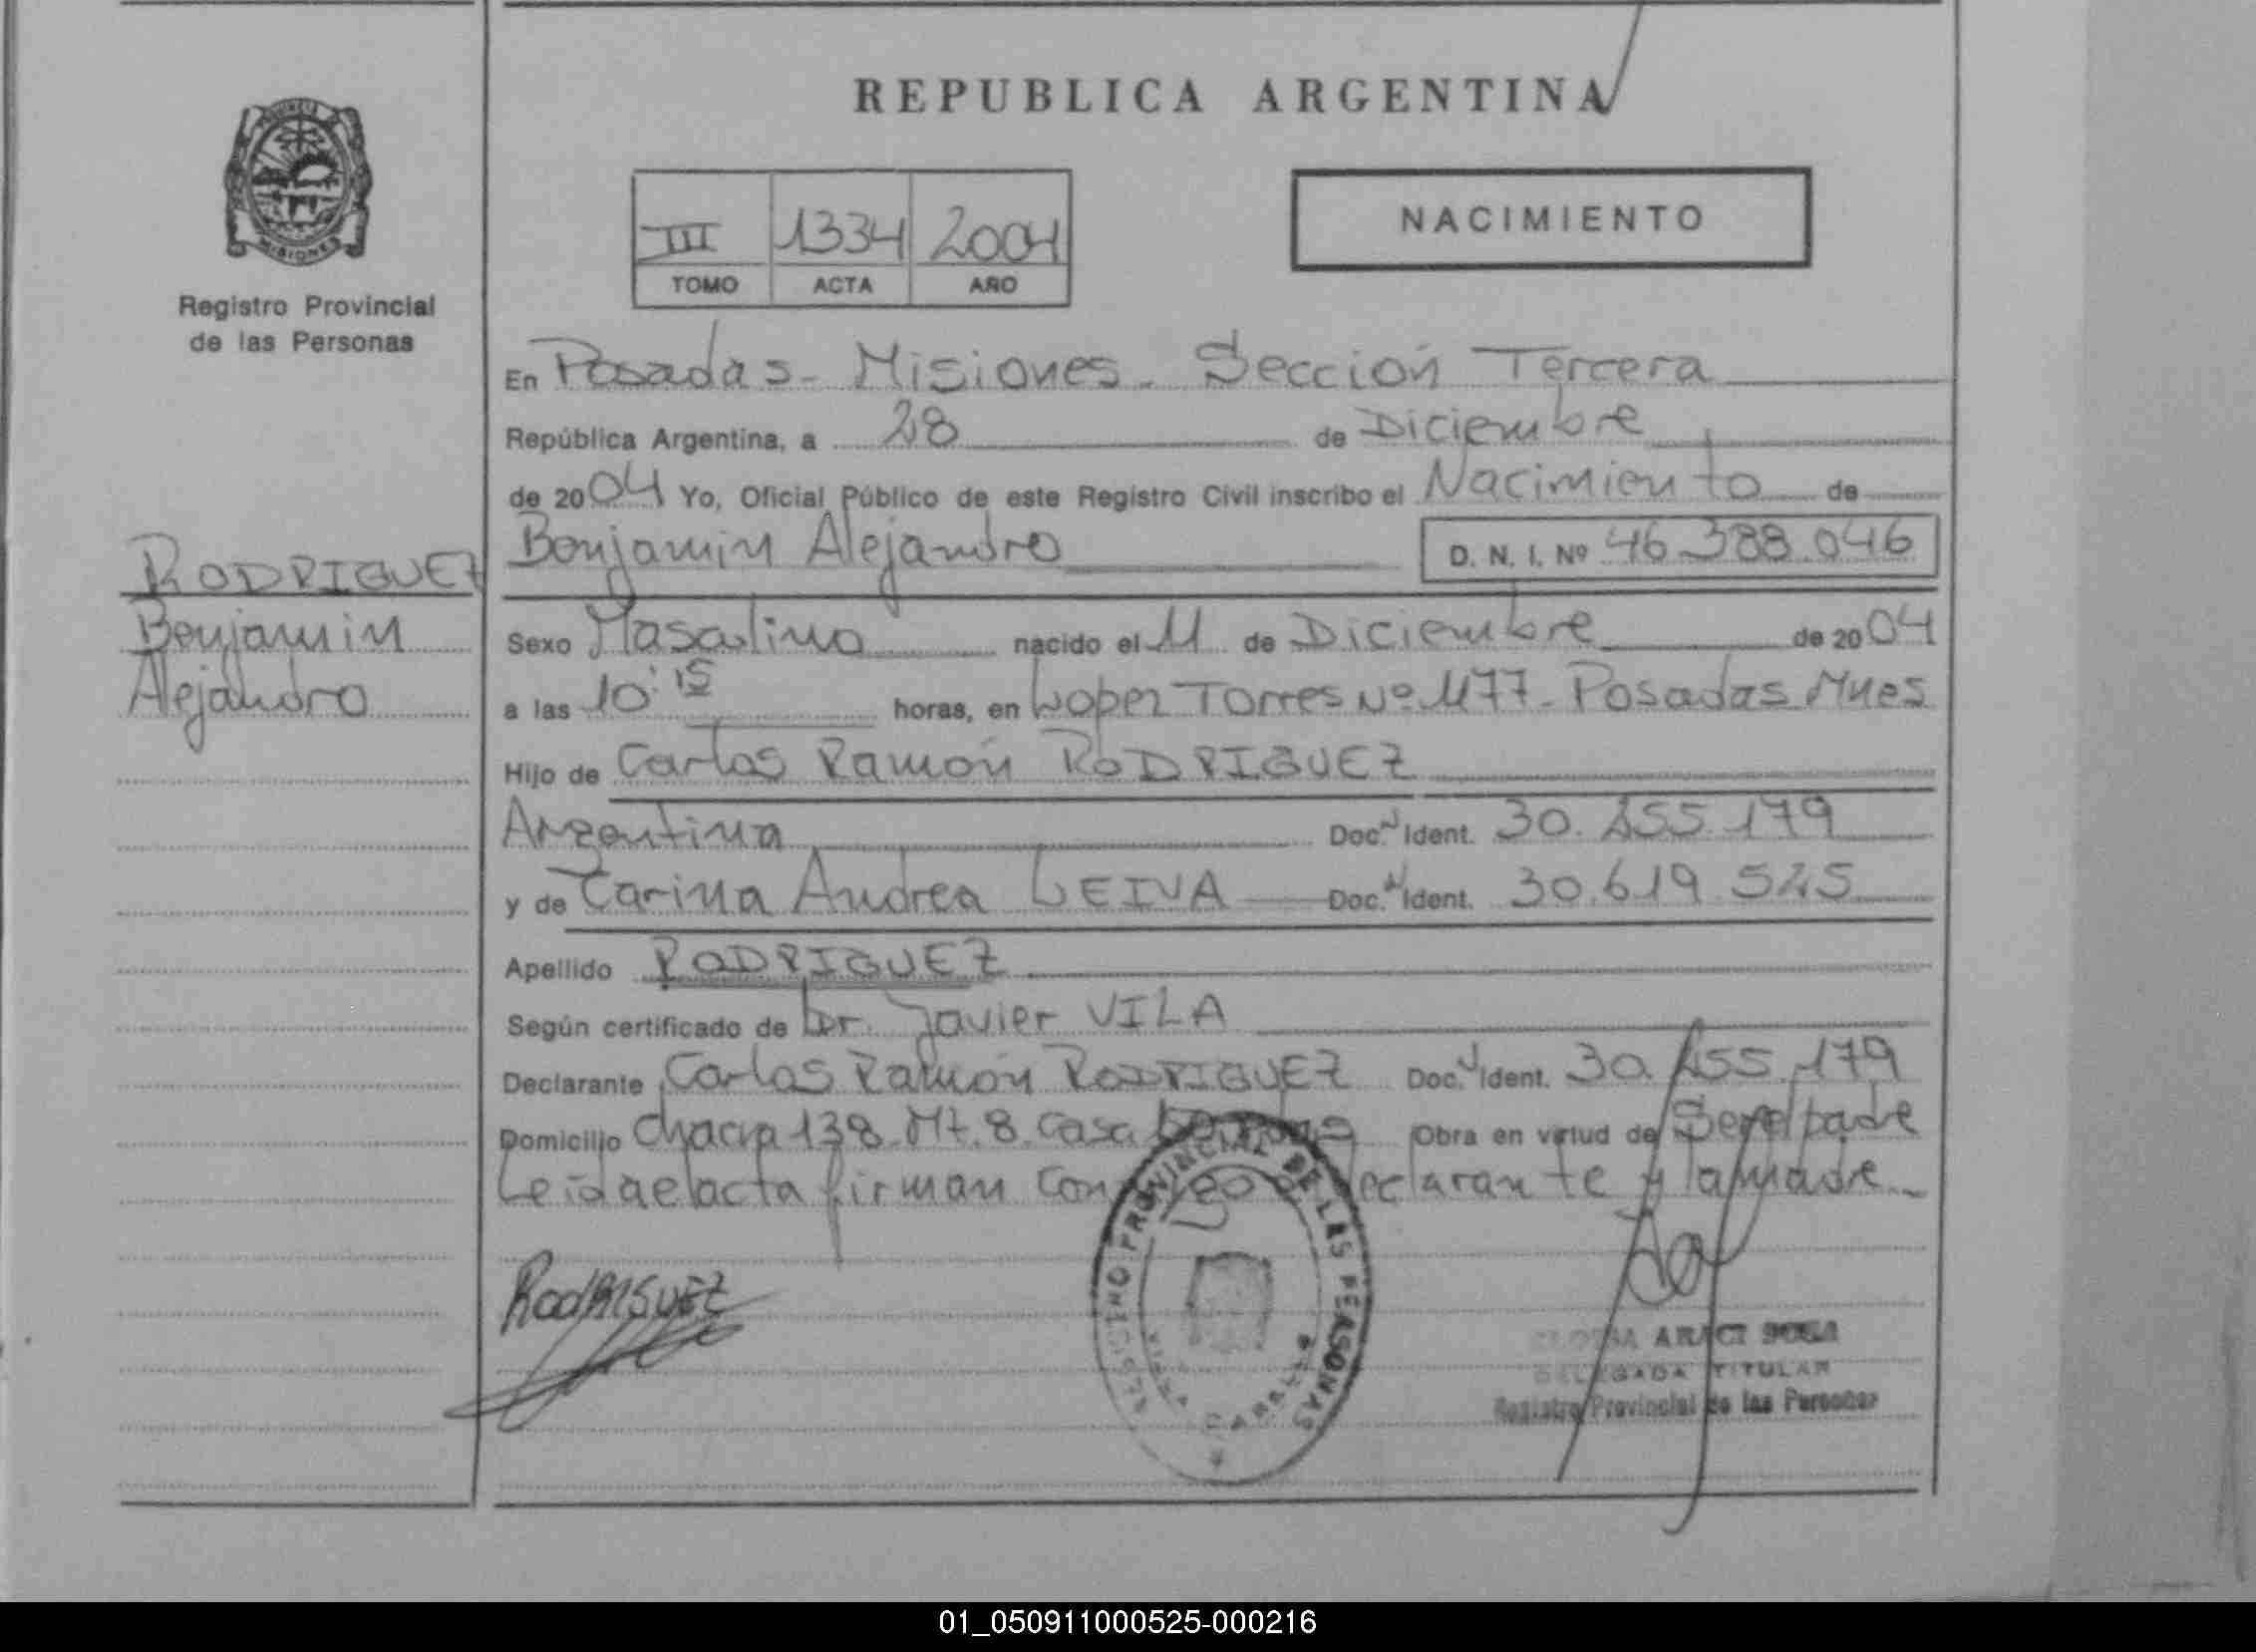 REPUBLICA ARGENTINA
PROVINCIA
MISIONES
Registro Provincial
de las Personas
III 1334 2004
TOMO ACTA AÑO
NACIMIENTO
En Posadas - Misiones. Sección Tercera
República Argentina, a 28 de Diciembre
de 2004 Yo, Oficial Público de este Registro Civil inscribo el Nacimiento de
Benjamin Alejandro D. N. I. Nº 46.388.046
RODRIGUEZ
Benjamin
Alejandro
Sexo Masculino nacido el 11 de Diciembre de 2004
a las 10:15 horas, en Lopez Torres Nº 1177 - Posadas Mnes
Hijo de Carlos Ramón RODRIGUEZ
Argentina Doc. Ident. 30. 255. 179
y de Carina Andrea LEIVA Doc. Ident. 30.619 525
Apellido RODRIGUEZ
Según certificado de Dr. Javier VILA
Declarante Carlos Ramón RODRIGUEZ Doc. Ident. 30. 255. 179
Domicilio Chacra 138 Mz. 8 Casa Obra en virtud de Ser el padre
Leida el acta firman conmigo el declarante y la madre
RodRISUEZ
REGISTRO PROVINCIAL DE LAS PERSONAS
ARACI
DELEGADA TITULAR
Registro Provincial de las Personas
01_050911000525-000216